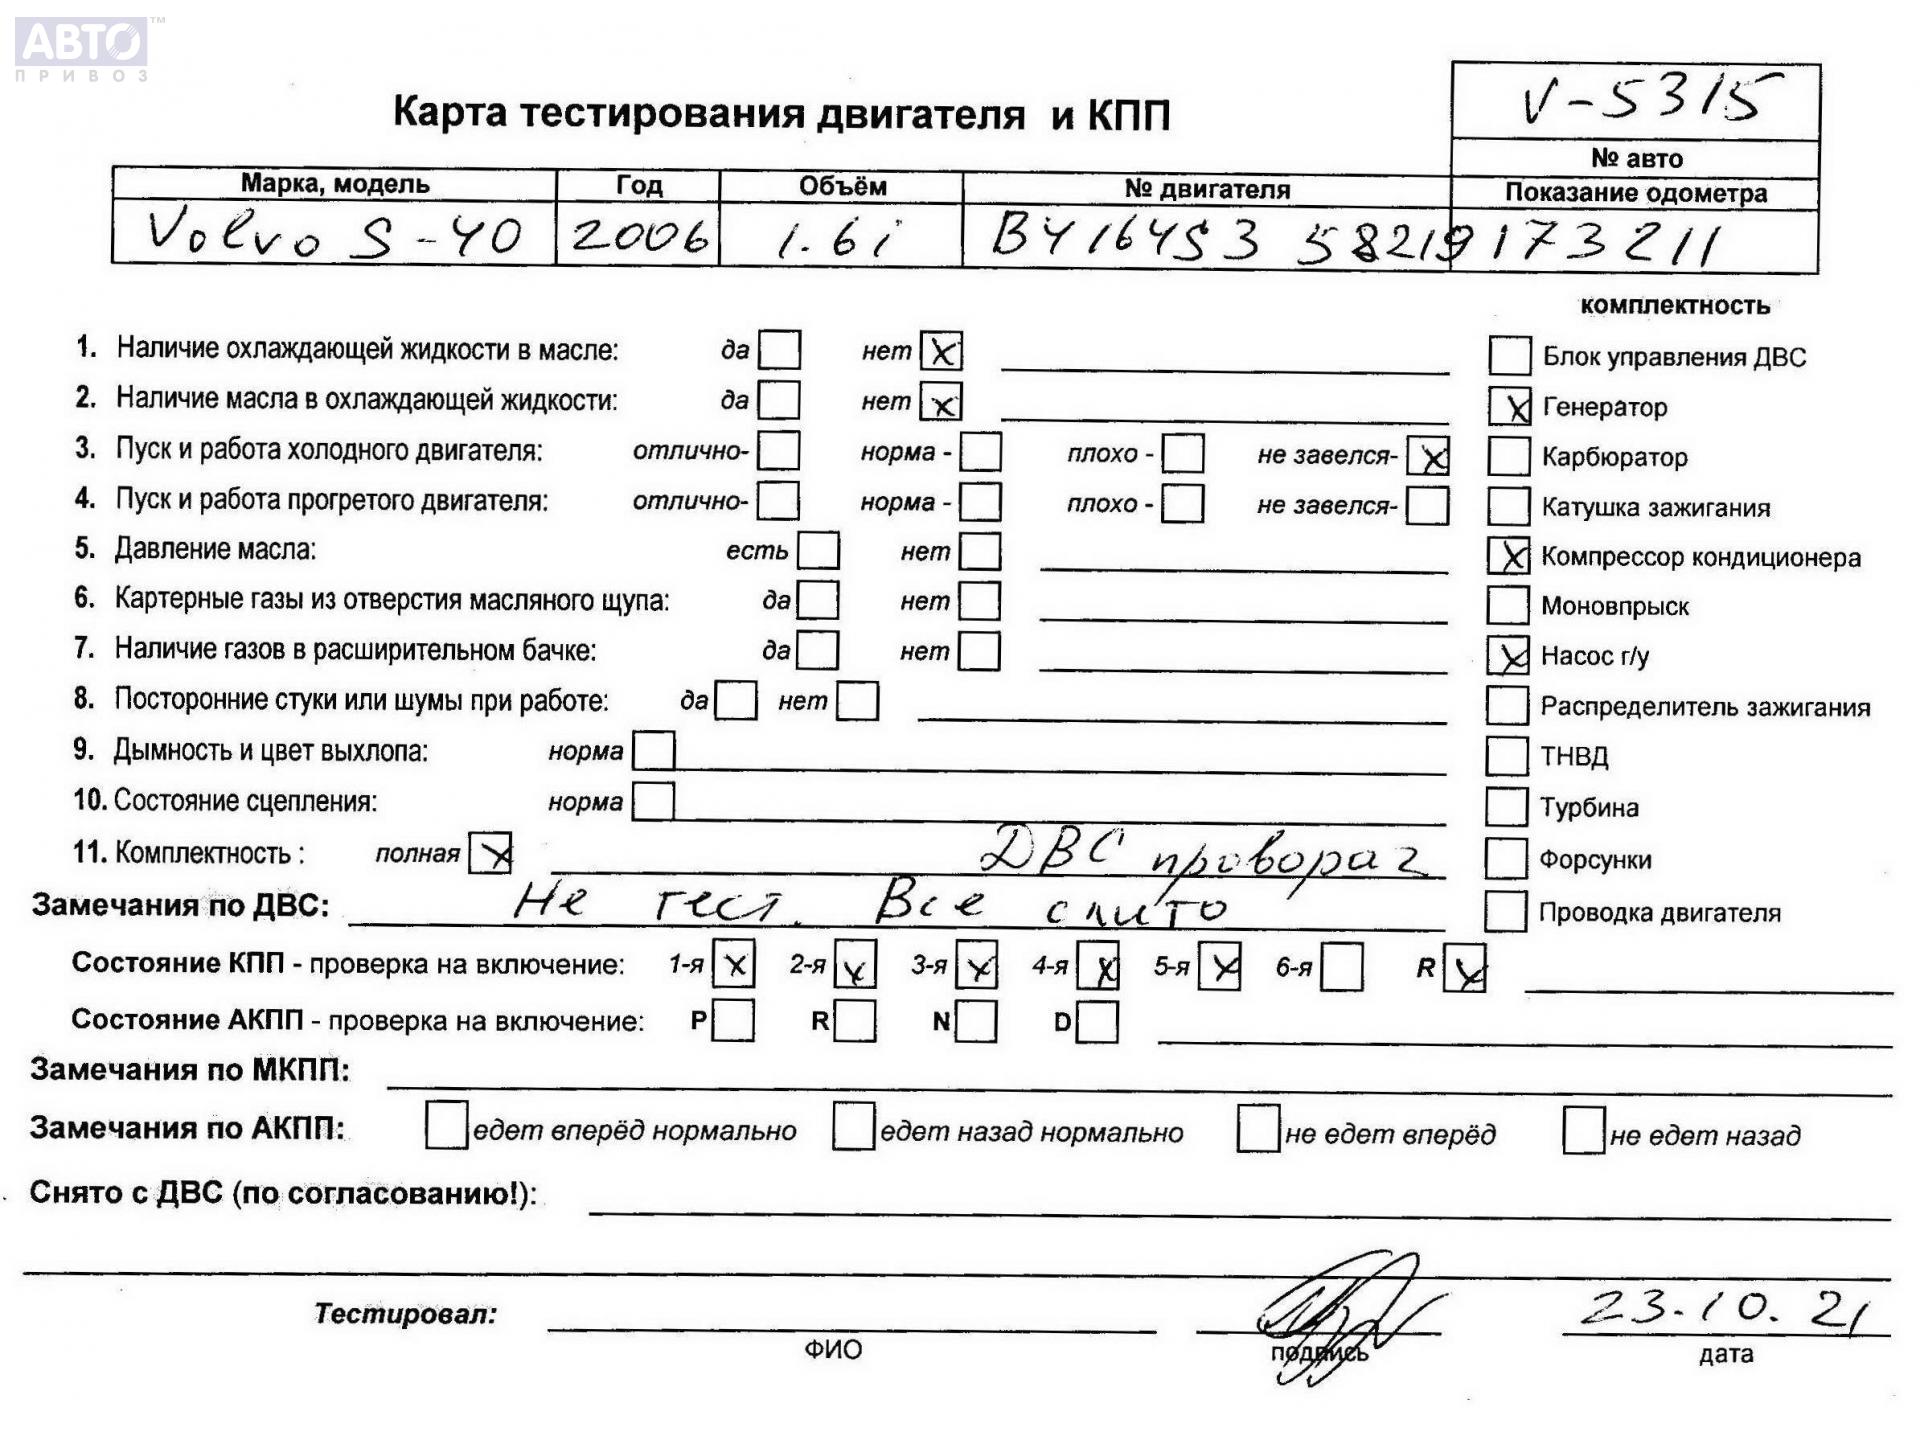 АВТО™
ПРИВОЗ
V-5315
Карта тестирования двигателя и КПП
№ авто
Марка, модель Год Объём № двигателя Показание одометра
Volvo S-40 2006 1.6i B4164S3 58219 173211
комплектность
1. Наличие охлаждающей жидкости в масле: да нет x Блок управления ДВС
2. Наличие масла в охлаждающей жидкости: да нет x x Генератор
3. Пуск и работа холодного двигателя: отлично- норма - плохо - не завелся- x Карбюратор
4. Пуск и работа прогретого двигателя: отлично- норма - плохо - не завелся- Катушка зажигания
5. Давление масла: есть нет x Компрессор кондиционера
6. Картерные газы из отверстия масляного щупа: да нет Моновпрыск
7. Наличие газов в расширительном бачке: да нет x Насос г/у
8. Посторонние стуки или шумы при работе: да нет Распределитель зажигания
9. Дымность и цвет выхлопа: норма ТНВД
10. Состояние сцепления: норма Турбина
11. Комплектность : полная x ДВС проворач Форсунки
Замечания по ДВС: Не тест. Все слито Проводка двигателя
Состояние КПП - проверка на включение: 1-я x 2-я x 3-я x 4-я x 5-я x 6-я R x
Состояние АКПП - проверка на включение: P R N D
Замечания по МКПП:
Замечания по АКПП: едет вперёд нормально едет назад нормально не едет вперёд не едет назад
Снято с ДВС (по согласованию!):
Тестировал: 23.10.21
ФИО подпись дата